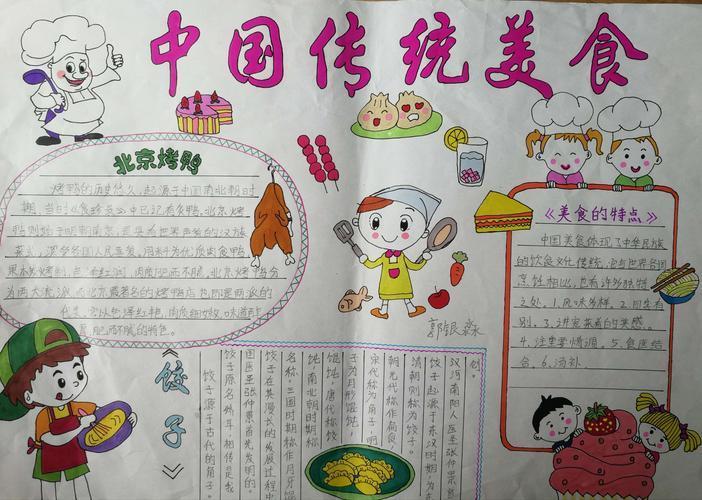 中国传统美食
北京烤鸭
烤鸭的历史悠久，起源于中国南北朝时
期，当时《食珍录》中已记有炙鸭。北京烤
是具有世界声誉的汉族
菜式，深受各国人民喜爱。用料为优质肉食鸭
果木炭烤制，色泽红润，肉质肥而不腻。北京烤鸭分
为两大流派，而北京最著名的烤鸭店也即是两派的
代表。它以色泽红艳，肉质细嫩，味道醇
厚，肥而不腻的特色。
《美食的特点》
中国美食体现了中华民族
的饮食文化传统，它与世界各国
烹饪相比，也有许多独特
之处。1.风味多样。2.四季有
别。3.讲究菜肴的美感。
4.注重情调。5.食医结
合。6.汤补
《饺子》
饺子源于古代的角子。
饺子原名娇耳，相传是我
国医圣张仲景首先发明的。
饺子在其漫长的发展过程中
名称，三国时期称作月牙馄
饨，南北朝时期称
馄饨，唐代称饺
子为月形馄饨
宋代称为角子，明
朝元代称作扁食
清朝则称为饺子。
饺子起源于东汉时期，为东
汉河南阳人医圣张仲景首
创。